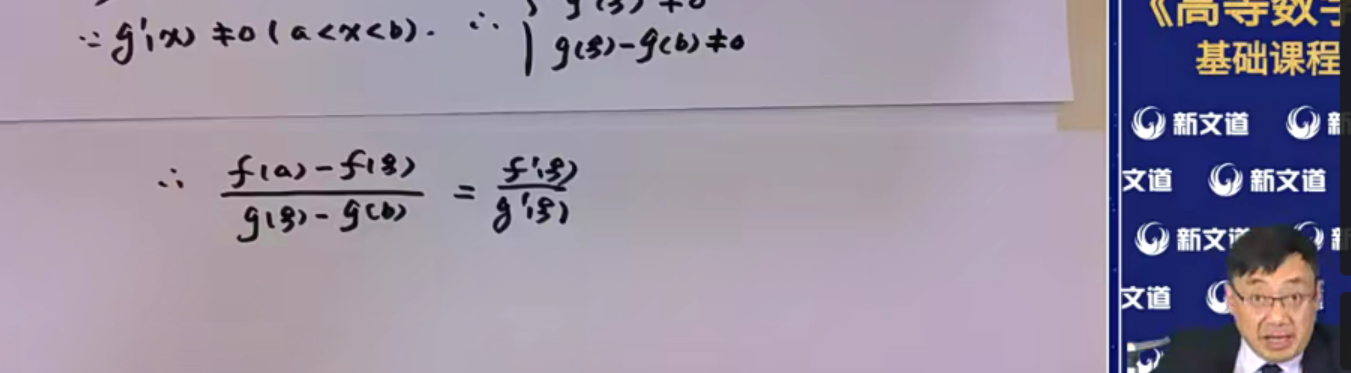 ∵ g'(x) ≠ 0 (a<x<b). ∴ { g'(ξ) ≠ 0
g(ξ) - g(b) ≠ 0
∴ (f(a) - f(ξ)) / (g(ξ) - g(b)) = f'(ξ) / g'(ξ)
《高等数学
基础课程
新文道 新
文道 新文道
新文道 新
文道